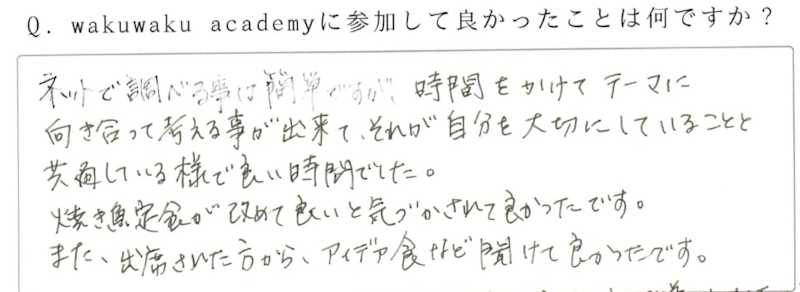 Q. wakuwaku academyに参加して良かったことは何ですか？
ネットで調べる事は簡単ですが、時間をかけてテーマに
向き合って考える事が出来て、それが自分を大切にしていることと
共通している様で良い時間でした。
焼き魚定食が改めて良いと気づかされて良かったです。
また、出席された方から、アイデア食など聞けて良かったです。